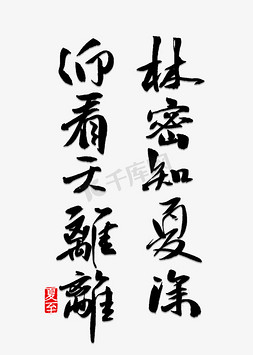 林密知夏深
仰看天離離
夏至
千库网